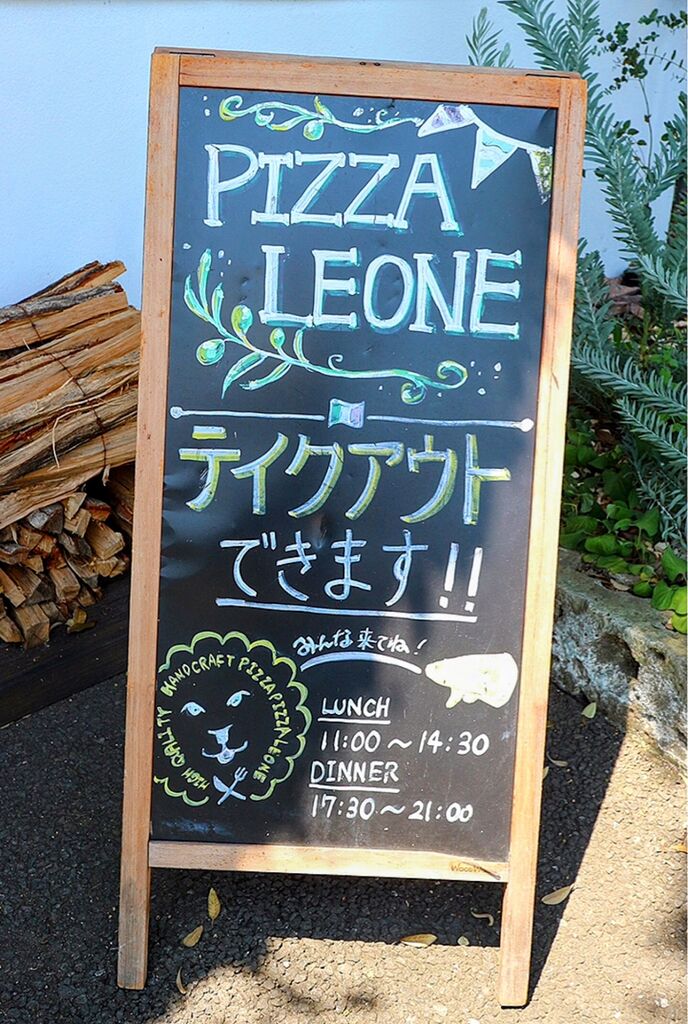 PIZZA
LEONE
テイクアウト
できます!!
みんな来てね!
HIGH QUALITY HANDCRAFT PIZZA PIZZA LEONE
LUNCH
11:00～14:30
DINNER
17:30～21:00